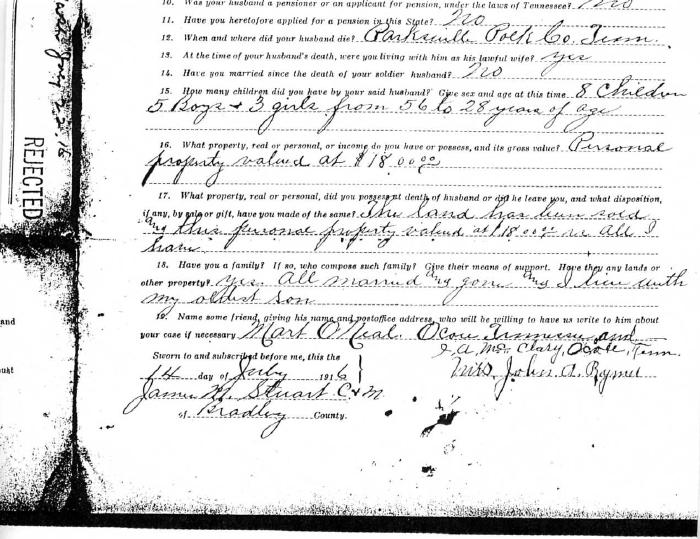 10. Was your husband a pensioner or an applicant for pension, under the laws of Tennessee? No
11. Have you heretofore applied for a pension in this State? No
12. When and where did your husband die? Parksville Polk Co. Tenn.
13. At the time of your husband's death, were you living with him as his lawful wife? yes
14. Have you married since the death of your soldier husband? No
15. How many children did you have by your said husband? Give sex and age at this time. 8 Children
5 Boys + 3 girls from 56 to 28 years of age
16. What property, real or personal, or income do you have or possess, and its gross value? Personal
property valued at $18.00
17. What property, real or personal, did you possess at death of husband or did he leave you, and what disposition,
if any, by sale or gift, have you made of the same? The land has been sold
this personal property valued at $18.00 is All I
have
18. Have you a family? If so, who compose such family? Give their means of support. Have they any lands or
other property? Yes. All married and gone and I live with
my oldest son
19. Name some friend, giving his name and postoffice address, who will be willing to have us write to him about
your case if necessary Mart O'Neal. Ocoee Tennessee and
J. A. McClary, Ocoee, Tenn.
Sworn to and subscribed before me, this the
14 day of July 1916
Mrs John A. Rymer
James Stuart C & M
of Bradley County.
REJECTED
July 22 16
and